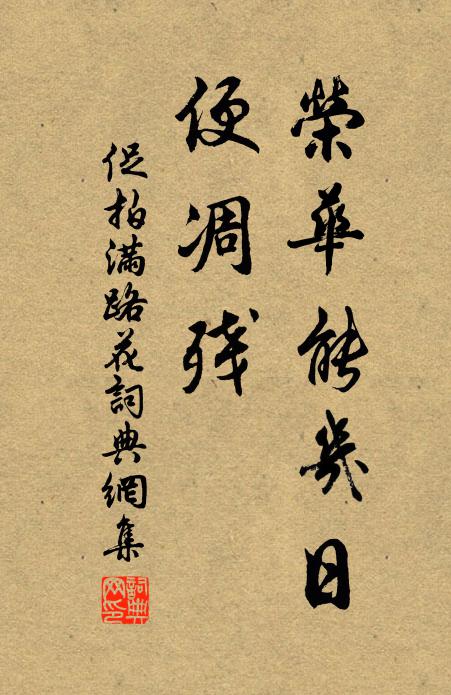 榮華能幾日
便凋残
促拍滿路花詞典網集
詞典网印